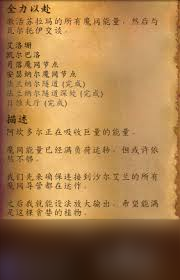 全力以赴
激活苏拉玛的所有魔网能量，然后与
瓦尔托伊交谈。
艾洛珊
凯尔巴洛
月落魔网节点
安瑟纳尔魔网节点
法兰纳尔隧道 (完成)
法兰纳尔隧道深处 (完成)
日蚀大厅 (完成)
描述
阿坎多尔正在吸收巨量的能量。
魔网能量已经满负荷运转，但或许依
然不够。
我们先来确保连接到沙尔艾兰的所有
魔网导管都在运作。
之后我就能设法放大输出，希望能满
足这棵贪婪的植物。